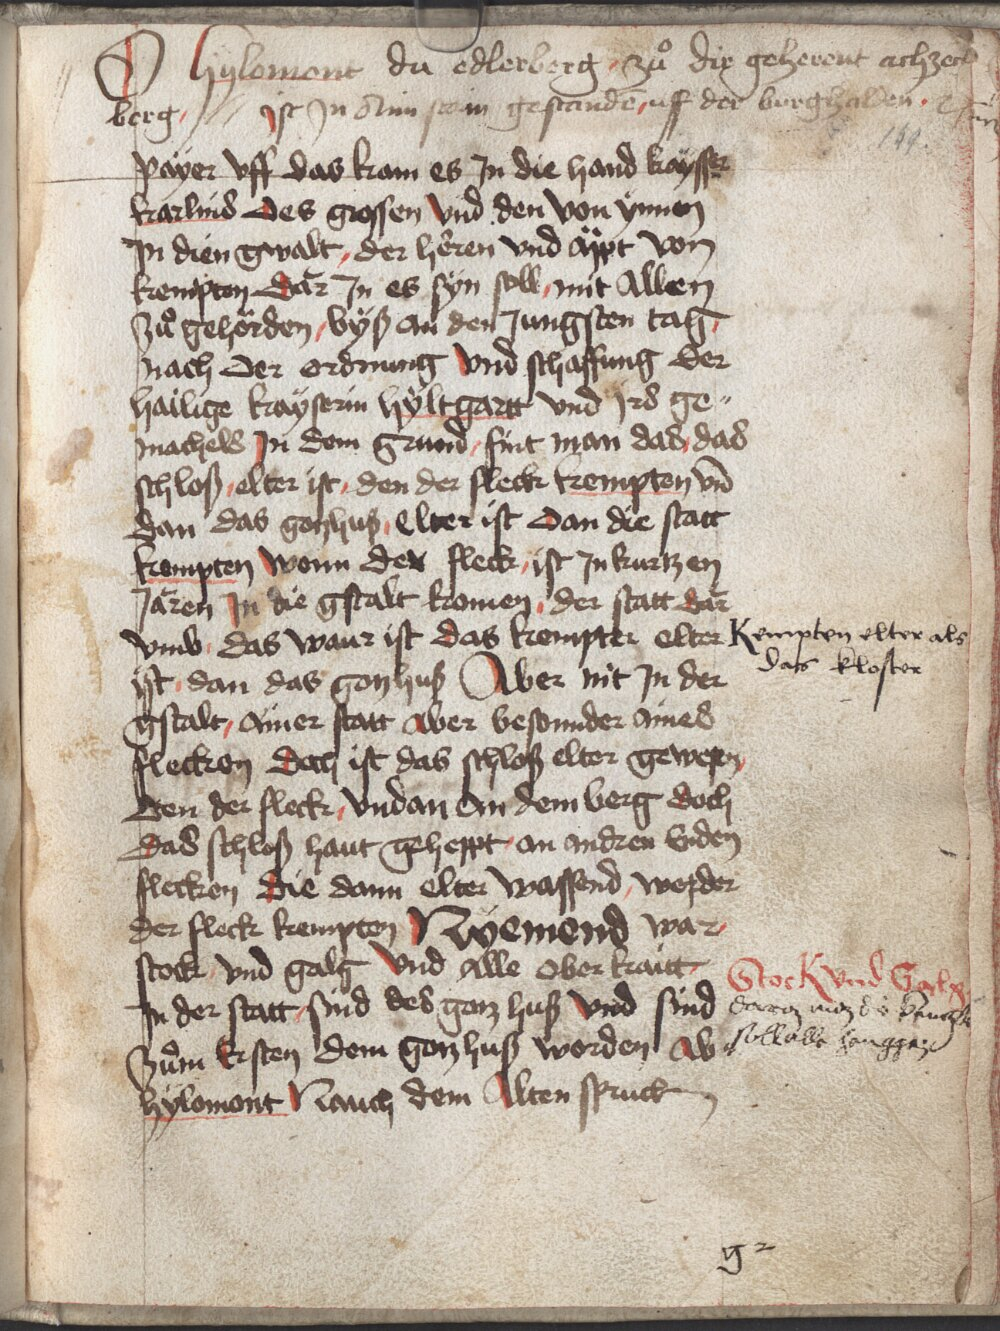 O hylomont du edlerberg, zuͦ dir geherent achzech
berg, ist In stain gestanden, uff der burghalden.
149.
payer vff das kam es In die hand kaysser
karlins Des grossen vnd den von ynnen
In dien gwalt, der heren vnd äpt von
kempten dar In es syn soll, mit Allen
zuͦ gehörden, byß an den Jungsten tag,
nach Der ordnung vnd schaffung der
hailige kayserin hyltgartt vnd Irs ge-
machels In dem grund, sint man das, das
schloß, elter ist, den der fleck kempten vnd
dan das gozhuß, Elter ist Dan die statt
kempten wenn der fleck, ist In kurtzen
Jaren In die gstalt komen, der statt dar
vmb, das waur ist das kempten elter
ist, dan das gozhuß Aber nit In der
gstalt, Ainer statt Aber besonnder Aines
flecken doch ist das schloß elter gewesen,
Den der fleck, vndan An dem berg doch
das schloß haut geheppt, an andren Enden
flecken die dann elter waffend, werder
der fleck kempten Nyemend war,
stock vnd galg vnd Alle oberkaitt
In der statt, sind des goz huß vnd sind
zuͦm Ersten dem gozhuß worden ab
hylomont Nauch dem Alten spruch
Kempten elter als
das kloster
Stock vnd Galg
g 2